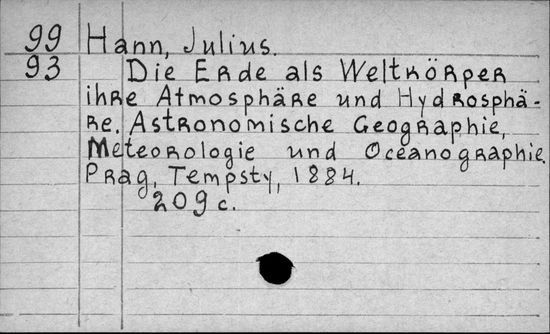 99 Hann, Julius.
93 Die Erde als Weltkörper
ihre Atmosphäre und Hydrosphä-
re. Astronomische Geographie,
Meteorologie und Oceanographie.
Prag, Tempsty, 1884.
209 c.